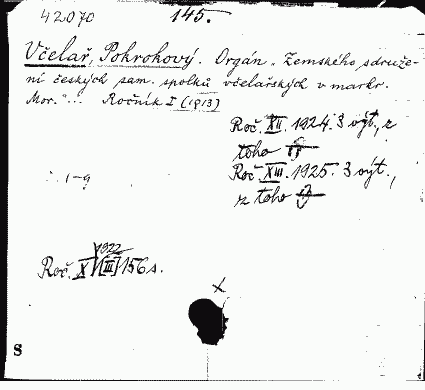 42070 145.
Včelař, Pokrokový. Orgán „Zemského sdruže-
ní českých sam. spolků včelařských v markr.
Mor."... Ročník I (1913)
Roč. XII. 1924. 3 výt., z
toho
Roč. XIII. 1925. 3 výt.,
z toho
1-9
1922
Roč. X [III] 156 s.
x
S